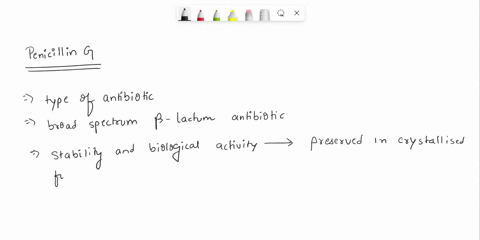 Penicillin G
=> type of antibiotic
=> broad spectrum β-lactum antibiotic
=> Stability and biological activity → preserved in crystallised
f